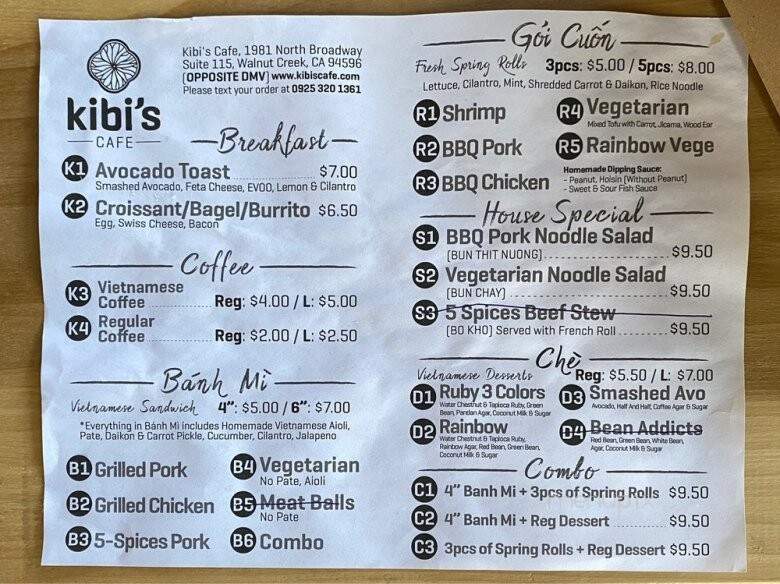 kibi's
CAFE
Kibi's Cafe, 1981 North Broadway
Suite 115, Walnut Creek, CA 94596
(OPPOSITE DMV) www.kibiscafe.com
Please text your order at 0925 320 1361
Breakfast
K1 Avocado Toast $7.00
Smashed Avocado, Feta Cheese, EVOO, Lemon & Cilantro
K2 Croissant/Bagel/Burrito $6.50
Egg, Swiss Cheese, Bacon
Coffee
K3 Vietnamese
Coffee Reg: $4.00 / L: $5.00
K4 Regular
Coffee Reg: $2.00 / L: $2.50
Bánh Mì
Vietnamese Sandwich 4": $5.00 / 6": $7.00
*Everything in Bánh Mì includes Homemade Vietnamese Aioli,
Pate, Daikon & Carrot Pickle, Cucumber, Cilantro, Jalapeno
B1 Grilled Pork
B2 Grilled Chicken
B3 5-Spices Pork
B4 Vegetarian
No Pate, Aioli
B5 Meat Balls
No Pate
B6 Combo
Gỏi Cuốn
Fresh Spring Rolls 3pcs: $5.00 / 5pcs: $8.00
Lettuce, Cilantro, Mint, Shredded Carrot & Daikon, Rice Noodle
R1 Shrimp
R2 BBQ Pork
R3 BBQ Chicken
R4 Vegetarian
Mixed Tofu with Carrot, Jicama, Wood Ear
R5 Rainbow Vege
Homemade Dipping Sauce:
- Peanut, Hoisin (Without Peanut)
- Sweet & Sour Fish Sauce
House Special
S1 BBQ Pork Noodle Salad
(BUN THIT NUONG) $9.50
S2 Vegetarian Noodle Salad
(BUN CHAY) $9.50
S3 5 Spices Beef Stew
(BO KHO) Served with French Roll $9.50
Chè
Vietnamese Desserts Reg: $5.50 / L: $7.00
D1 Ruby 3 Colors
Water Chestnut & Tapioca Ruby, Green
Bean, Pandan Agar, Coconut Milk & Sugar
D2 Rainbow
Water Chestnut & Tapioca Ruby,
Rainbow Agar, Red Bean, Green Bean,
Coconut Milk & Sugar
D3 Smashed Avo
Avocado, Half And Half, Coffee Agar & Sugar
D4 Bean Addicts
Red Bean, Green Bean, White Bean,
Agar, Coconut Milk & Sugar
Combo
C1 4" Banh Mi + 3pcs of Spring Rolls $9.50
C2 4" Banh Mi + Reg Dessert $9.50
C3 3pcs of Spring Rolls + Reg Dessert $9.50